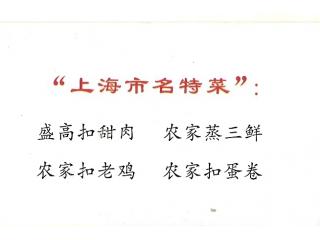 “上海市名特菜”：
盛高扣甜肉 农家蒸三鲜
农家扣老鸡 农家扣蛋卷